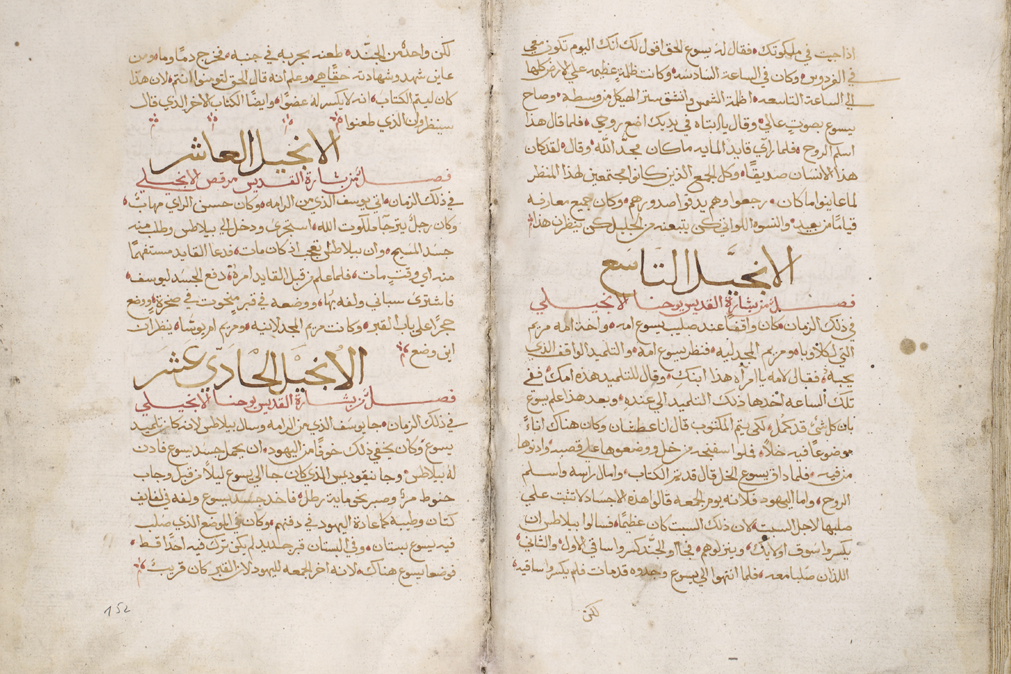 اذا جيت في ملكوتك فقال له يسوع الحق اقول لك انك اليوم تكون معي
في الفردوس وكان في الساعة السادسه وكانت ظلمة عظيمه علي الارض كلها
الي الساعة التاسعه اظلمة الشمس وانشق ستر الهيكل من وسطه وصاح
يسوع بصوت عالي وقال يا ابتاه في يديك اضع روحي فلما قال هذا
اسلم الروح فلما راي قايد المايه ما كان مجد الله وقال لقد كان
هذا الانسان صديقا وكل الجمع الذين كانوا مجتمعين لهذا المنظر
لما عاينوا ما كان رجعوا وهم يدقوا صدورهم وكان جميع معارفه
قياما من بعيد والنسوة اللواتي كن يتبعنه من الجليل كن ينظرن هذا
الانجيل التاسع
فصل من بشارة القديس يوحنا الانجيلي
في ذلك الزمان كان واقفا عند صليب يسوع امه واخت امه مريم
التي لكلاوبا ومريم المجدليه فنظر يسوع امه والتلميد الواقف الذي
يحبه فقال لامه يا امراه هذا ابنك وقال للتلميد هذه امك ففي
تلك الساعه اخدها ذلك التلميد الي عنده وبعد هذا علم يسوع
بان كل شي قد كمل لكي يتم المكتوب قال انا عطشان وكان هناك اناء
موضوعا فيه خلا فملوا اسفنجه من خل ووضعوها علي قصبه وادنوها
من فيه فلما داق يسوع الخل قال قد تم الكتاب وامال راسه واسلم
الروح واما اليهود فلانه يوم الجمعه قالوا هذه الاجساد لا تثبت علي
صلبها لاجل السبت لان ذلك السبت كان عظيما فسالوا بيلاطس ان
يكسروا سوق اولايك وينزلوهم فجاوا الجند كسروا ساقي الاول والثاني
اللذان صلبا معه فلما انتهوا الي يسوع وجدوه قد مات فلم يكسروا ساقيه
لكن
لكن واحد من الجند طعنه بحربه في جنبه فخرج دما وما ومن
عاين شهد وشهادته حق هي وعلم انه قال الحق لتومنوا انتم لان هذا
كان ليتم الكتاب انه لا يكسر له عضوا وايضا الكتاب الاخر الذي قال
سينظرون الذي طعنوا
الانجيل العاشر
فصل من بشارة القديس مرقص الانجيلي
في ذلك الزمان اتي يوسف الذي من الرامه وكان حسن الراي مهابا
وكان رجل يترجا ملكوت الله استجرى ودخل الي بيلاطس وطلب منه
جسد المسيح وان بيلاطس تعجب اذ كان مات فدعا القايد مستفهما
منه اي وقت مات فلما علم من قبل القايد امرة دفع الجسد ليوسف
فاشترى سباني ولفه بها ووضعه في قبر منحوت في صخرة ووضع
حجرا على باب القبر وكانت مريم المجدلانيه ومريم ام يوشا ينظران
اين وضع
الانجيل الحادي عشر
فصل من بشارة القديس يوحنا الانجيلي
في ذلك الزمان جا يوسف الذي من الرامه وسال بيلاطس لانه كان تلميد
يسوع وكان يخفي ذلك خوفا من اليهود ان يحمل جسد يسوع فادن
له بيلاطس وجا نيقوديس الذي كان جا الي يسوع ليلا من قبل وجاب
حنوط مر وصبر نحو مايه رطل فاخد جسد يسوع ولفه في لفايف
كتان وطيبه كما عادة اليهود في دفنهم وكان في الموضع الذي صلب
فيه يسوع بستان وفي البستان قبر جديد لم يكن ترك فيه احدا قط
فوضعا يسوع هناك لانه اخر الجمعه لليهود لان القبر كان قريب
152